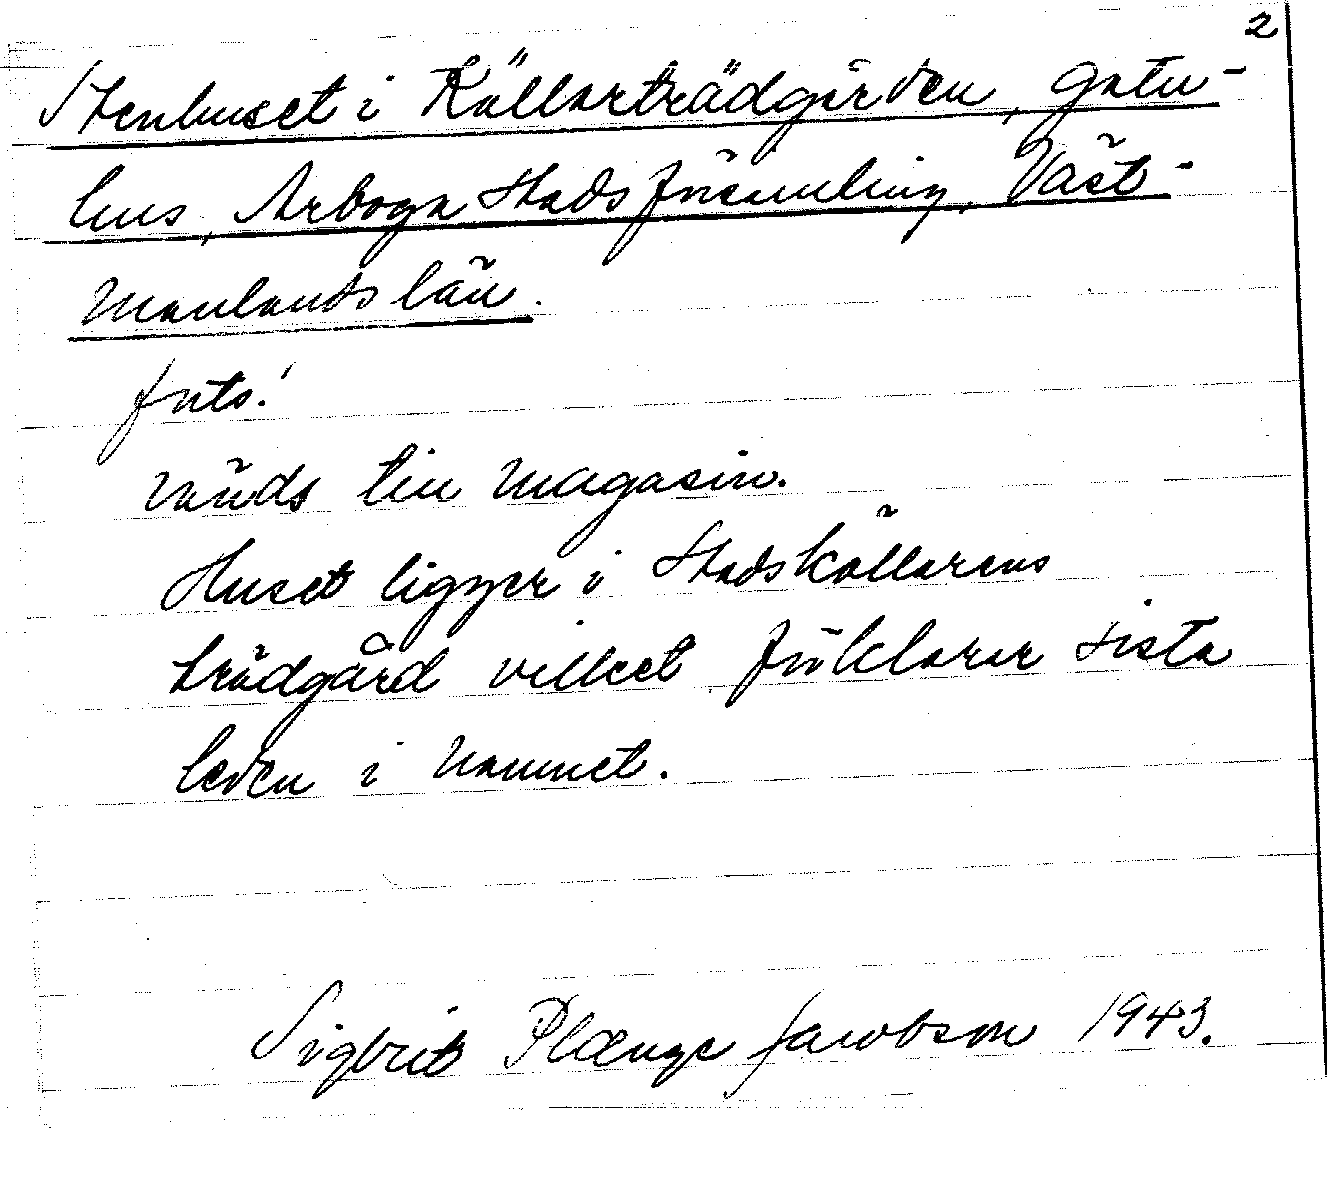 2
Stenhuset i Källarträdgården, gatu-
hus, Arboga Stadsförsamling, Väst-
manlands län.
forts.
vänds till magasin.
Huset ligger i Stadskällarens
trädgård vilket förklarar sista
leden i namnet.
Sigbrit Plænge Jacobson 1943.